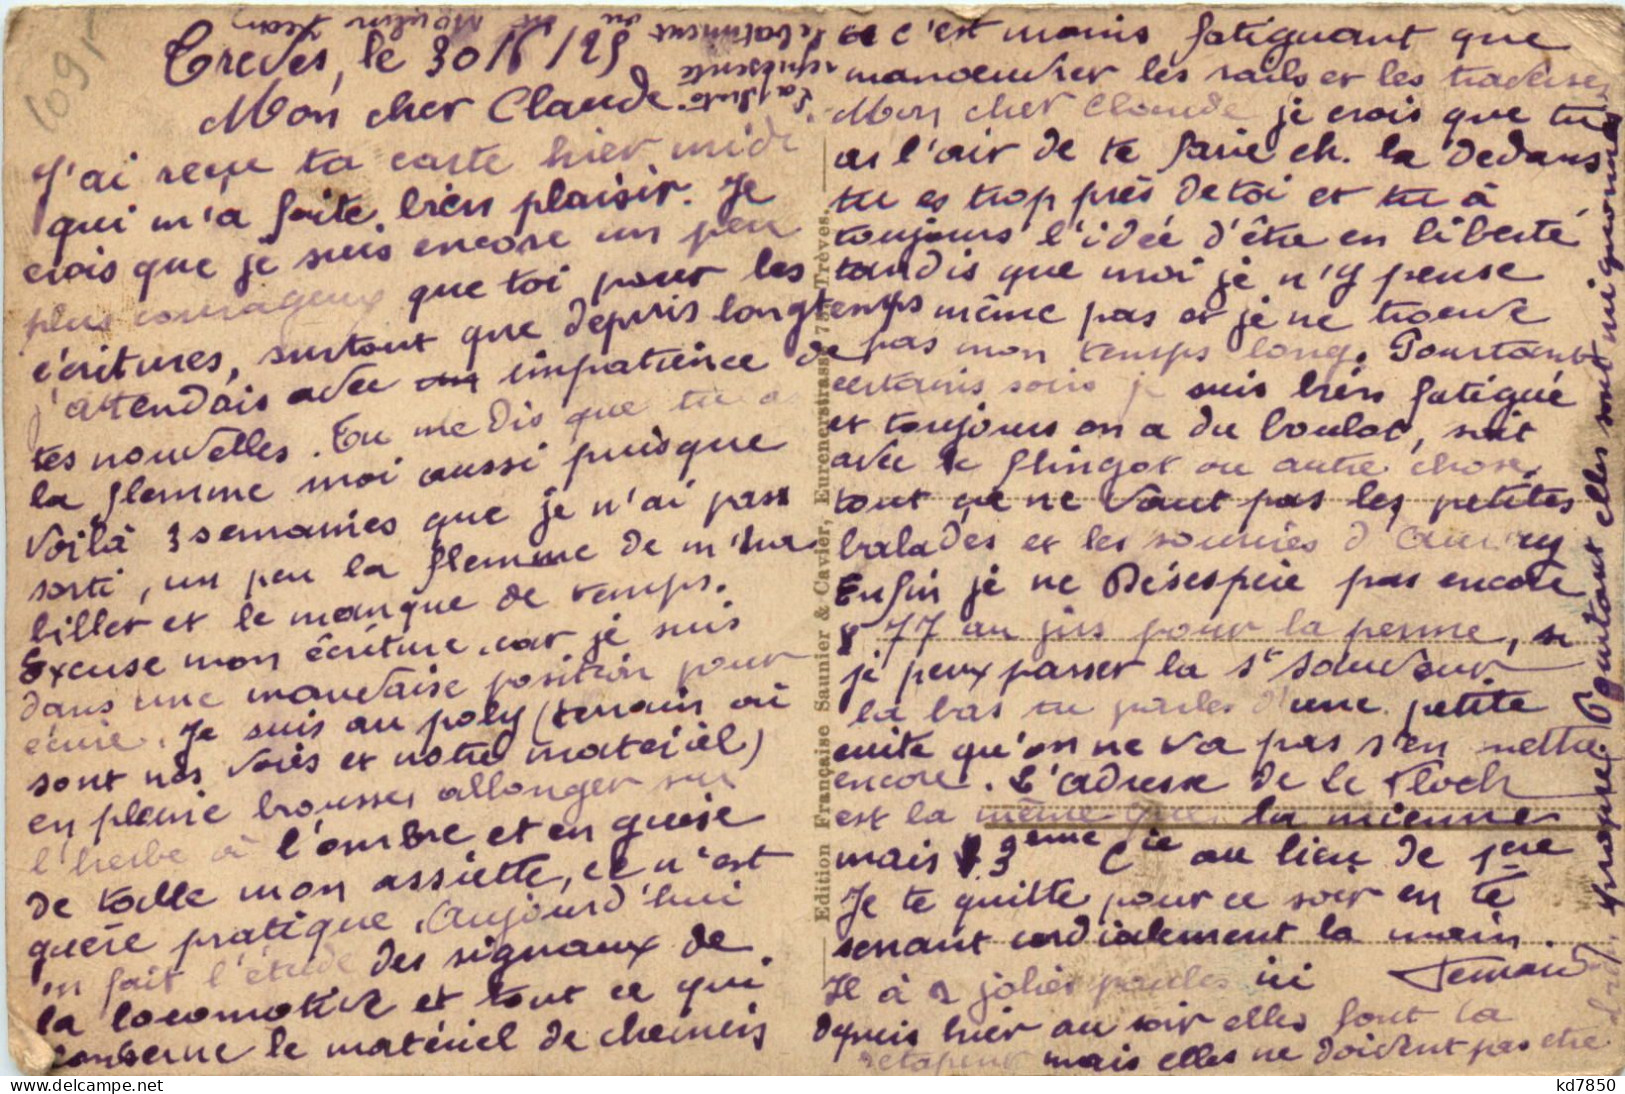 Treves, le 30/5/25
Mon cher Claude
J'ai reçu ta carte hier midi
qui m'a faite bien plaisir. Je
crois que je suis encore un peu
plus courageux que toi pour les
écritures, surtout que depuis longtemps
j'attendais avec impatience de
tes nouvelles. Tu me dis que tu as
la flemme moi aussi puisque
voilà 3 semaines que je n'ai pas
sorti, un peu la flemme de m'ha
biller et le manque de temps.
Excuse mon écriture car je suis
dans une mauvaise position pour
écrire. Je suis au poly (terrain où
sont nos voies et notre matériel)
en pleine brousse, allonger sur
l'herbe à l'ombre et en guise
de table mon assiette, ce n'est
guère pratique. Aujourd'hui
on fait l'étude des signaux de
la locomotive et tout ce qui
conserne le matériel de chemins
c'est moins fatiguant que
manoeuvrer les rails et les traverses
Mon cher Claude je crois que tu
as l'air de te faire ch. la dedans
tu es trop près de toi et tu à
toujours l'idée d'être en liberté
tandis que moi je n'y pense
même pas et je ne trouve
pas mon temps long. Pourtant
certains soirs je suis bien fatigué
et toujours on a du boulot, soit
avec le flingot ou autre chose,
tout ça ne vaut pas les petites
balades et les sourires d'
Enfin je ne désespère pas encore
77 au jus pour la perme, si
je peux passer la St Sauveur
la bas tu parles d'une petite
cuite qu'on ne va pas s'en mettre
encore. L'adresse de Le Floch
est la même que la mienne
mais 3eme Cie au lieu de 1ere
Je te quitte pour ce soir en te
serrant cordialement la main.
Fernand
Il à 2 jolies poules ici
depuis hier au soir elles font la
retapeur mais elles ne doivent pas être
propres pourtant elles sont mignonnes
La photo
représente
le batiment du Moulin Jean
1091
Edition Française Saunier & Cavier, Eurenerstrasse 78, Trèves.
kd7850